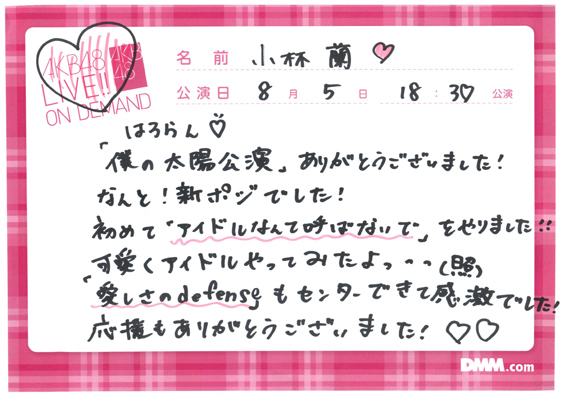 AKB48
LIVE!!
ON DEMAND
AKB
48
名前 小林 蘭 ♡
公演日 8月 5日 18:30 公演
はろらん♡
「僕の太陽公演」ありがとうございました!
なんと!新ポジでした!
初めて「アイドルなんて呼ばないで」をやりました!!
可愛くアイドルやってみたよっーー(照)
「愛しさのdefense」もセンターできて感激でした!
応援もありがとうございました!♡♡
DMM.com